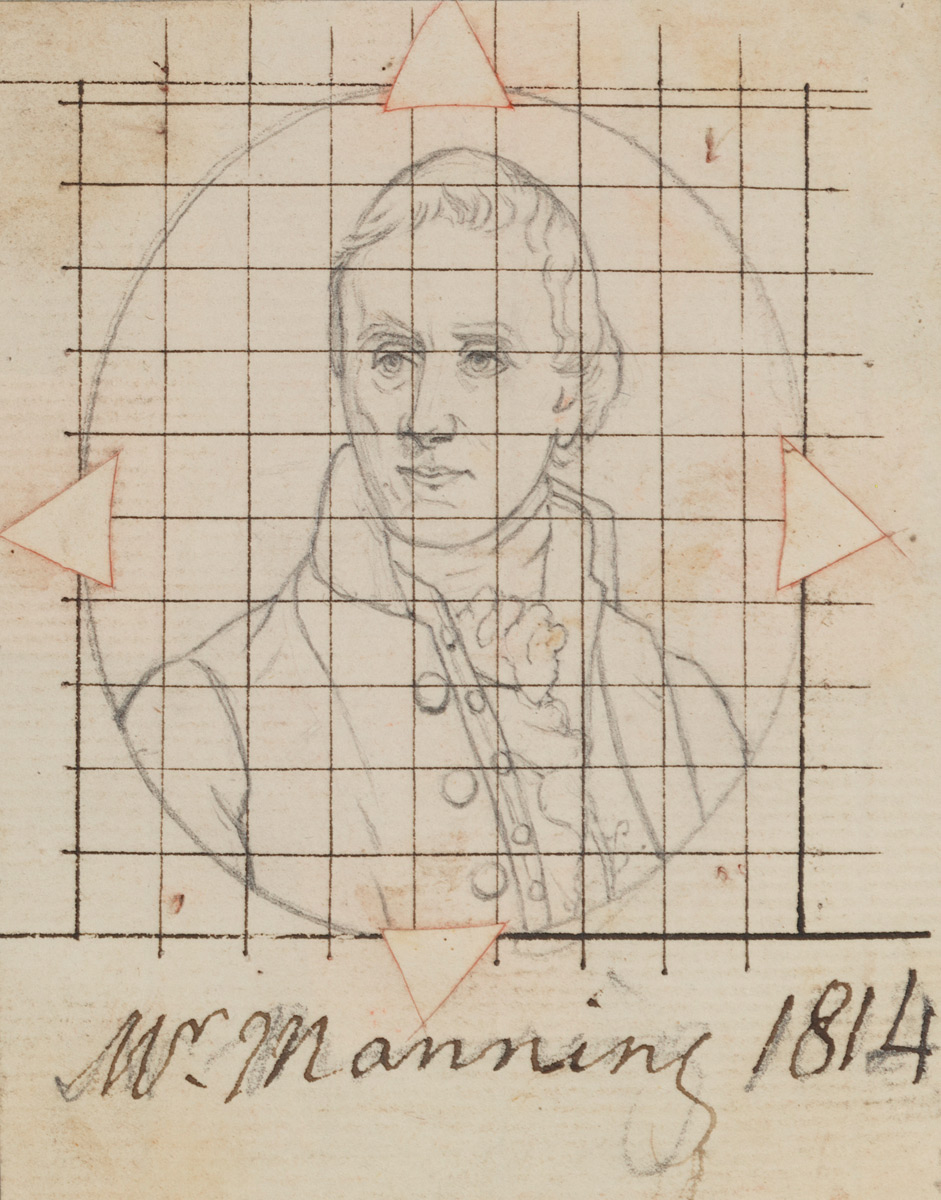 Mr. Manning 1814